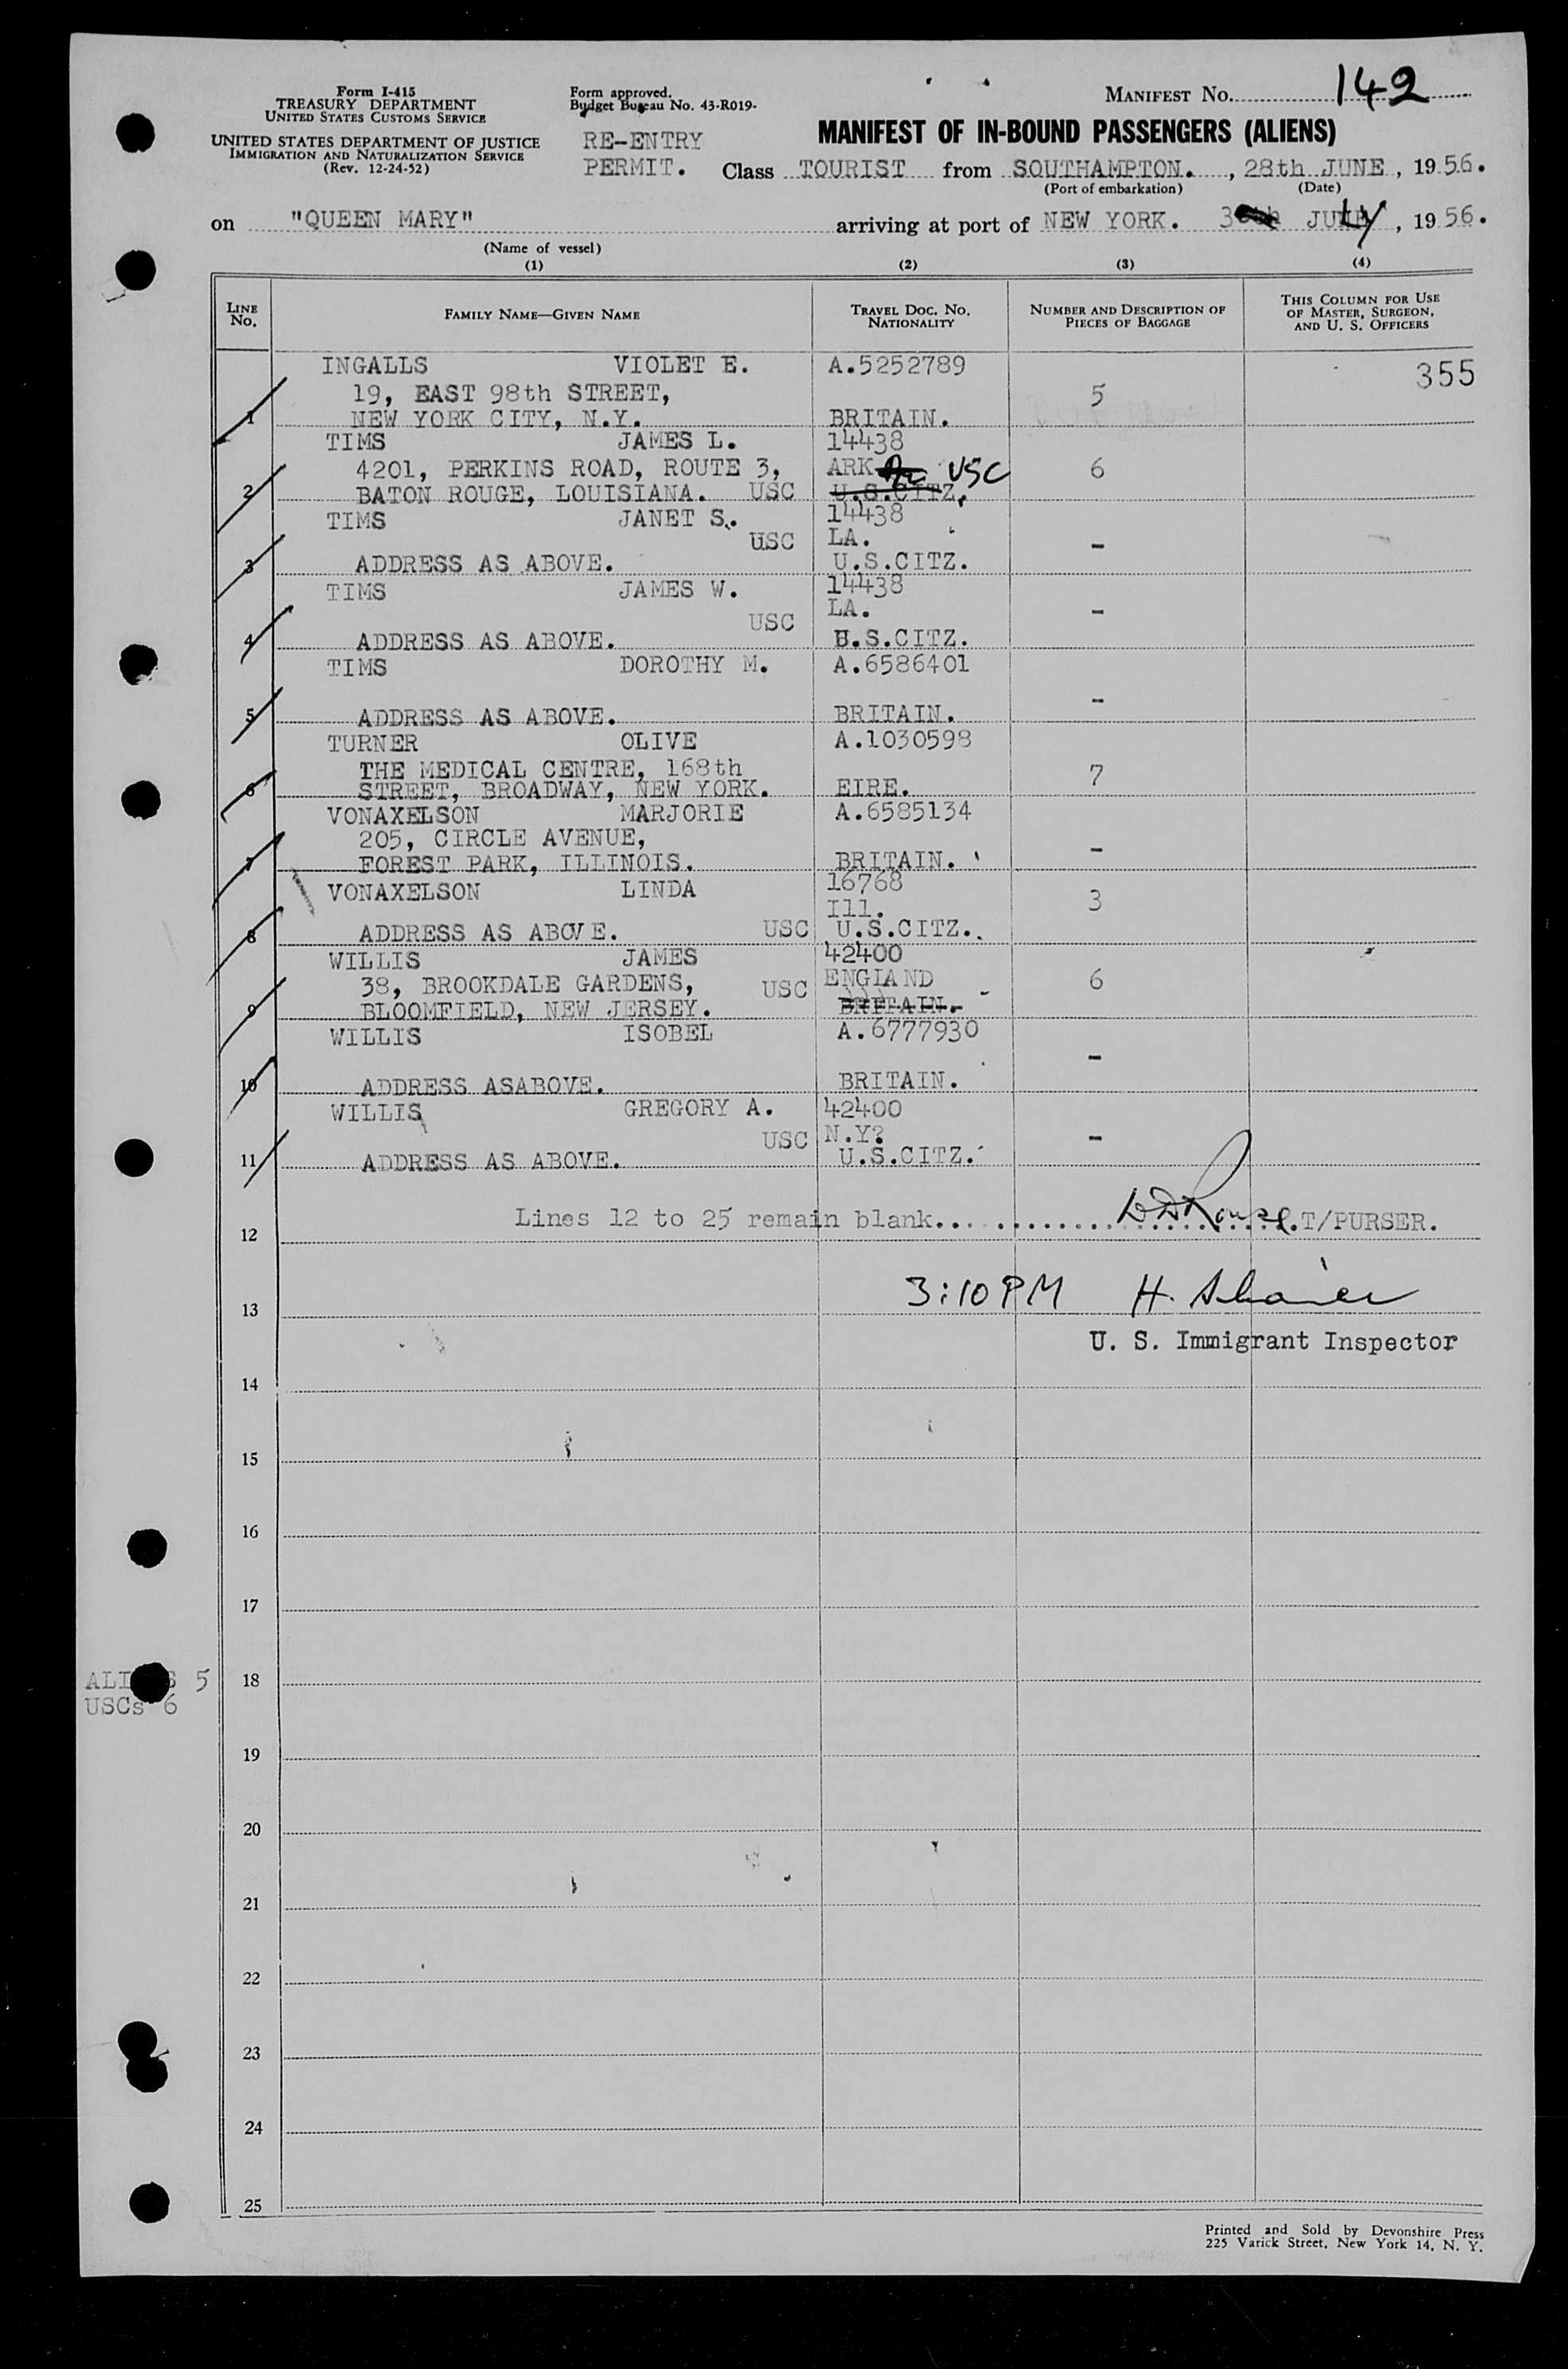 Form I-415
TREASURY DEPARTMENT
UNITED STATES CUSTOMS SERVICE
UNITED STATES DEPARTMENT OF JUSTICE
IMMIGRATION AND NATURALIZATION SERVICE
(Rev. 12-24-52)
Form approved.
Budget Bureau No. 43-R019-
RE-ENTRY
PERMIT.
MANIFEST NO. 142
MANIFEST OF IN-BOUND PASSENGERS (ALIENS)
Class TOURIST from SOUTHAMPTON. , 28th JUNE , 1956.
(Port of embarkation) (Date)
on "QUEEN MARY" arriving at port of NEW YORK. 3 JULY , 1956.
(Name of vessel)
(1) (2) (3) (4)
LINE NO. FAMILY NAME—GIVEN NAME TRAVEL DOC. NO. NATIONALITY NUMBER AND DESCRIPTION OF PIECES OF BAGGAGE THIS COLUMN FOR USE OF MASTER, SURGEON, AND U. S. OFFICERS
INGALLS VIOLET E. A.5252789 355
19, EAST 98th STREET, 5
1 NEW YORK CITY, N.Y. BRITAIN.
TIMS JAMES L. 14438
4201, PERKINS ROAD, ROUTE 3, ARK USC 6
2 BATON ROUGE, LOUISIANA. USC U.S.CITZ.
TIMS JANET S. 14438
USC LA. -
3 ADDRESS AS ABOVE. U.S.CITZ.
TIMS JAMES W. 14438
USC LA. -
4 ADDRESS AS ABOVE. U.S.CITZ.
TIMS DOROTHY M. A.6586401
-
5 ADDRESS AS ABOVE. BRITAIN.
TURNER OLIVE A.1030598
THE MEDICAL CENTRE, 168th 7
6 STREET, BROADWAY, NEW YORK. EIRE.
VONAXELSON MARJORIE A.6585134
205, CIRCLE AVENUE, -
7 FOREST PARK, ILLINOIS. BRITAIN.
VONAXELSON LINDA 16768
Ill. 3
8 ADDRESS AS ABOVE. USC U.S.CITZ.
WILLIS JAMES 42400
38, BROOKDALE GARDENS, USC ENGLAND 6
9 BLOOMFIELD, NEW JERSEY. BRITAIN.
WILLIS ISOBEL A.6777930
-
10 ADDRESS ASABOVE. BRITAIN.
WILLIS GREGORY A. 42400
USC N.Y? -
11 ADDRESS AS ABOVE. U.S.CITZ.
Lines 12 to 25 remain blank. T/PURSER.
12
3:10 PM H.
13
U. S. Immigrant Inspector
14
15
16
17
ALIENS 5 18
USCs 6
19
20
21
22
23
24
25
Printed and Sold by Devonshire Press
225 Varick Street, New York 14, N. Y.